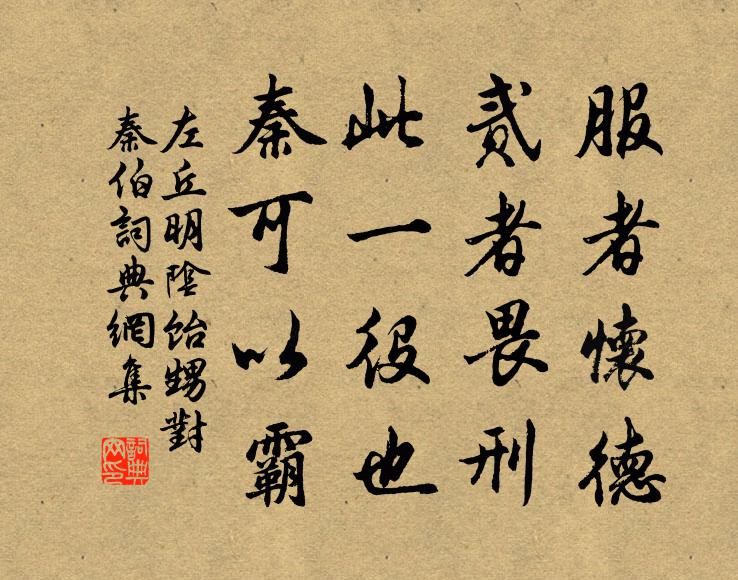 服者懷德
貳者畏刑
此一役也
秦可以霸
左丘明陰飴甥對
秦伯詞典網集
詞典
网印